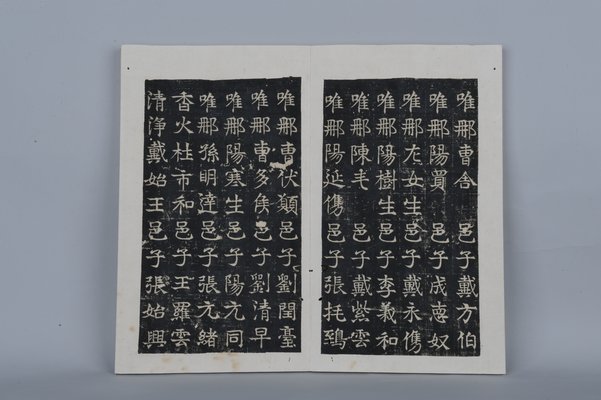 唯那曹合 邑子戴方伯
唯那陽買 邑子成惪奴
唯那左女生邑子戴永儁
唯那陽樹生邑子李義和
唯那陳毛 邑子戴紫雲
唯那陽延儁邑子張托鵄
唯那曹伏顛邑子劉閏臺
唯那曹多侯邑子劉清早
唯那陽寒生邑子陽亢同
唯那孫明達邑子張亢緒
香火杜市和邑子王羅雲
清淨戴始王邑子張始興